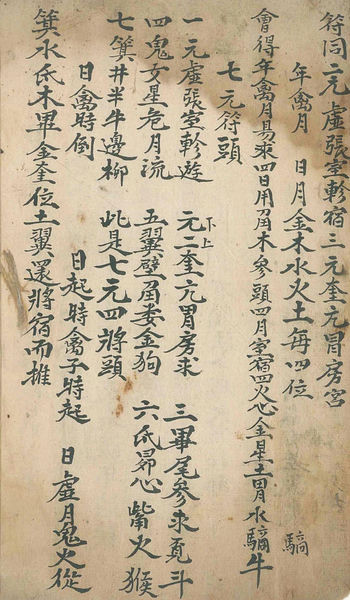 符同二元虛張室軫宿三元奎亢胃房宮
年禽月 日月金木水火土每四位
會得年禽月易求四日用角木參頭四月室宿四火心金星土胃水騸牛
騸
七元符頭
一元虛張室軫遊 元二奎亢胃房求 三畢尾參求覓斗
下上
四鬼女星危月流 五翼壁角婁金狗 六氐昴心觜火猴
七箕井半牛邊柳 此是七元四將頭
日禽時倒 日起時禽子時起 日虛月鬼火從
箕水氐木畢金奎位土翼還將宿而推